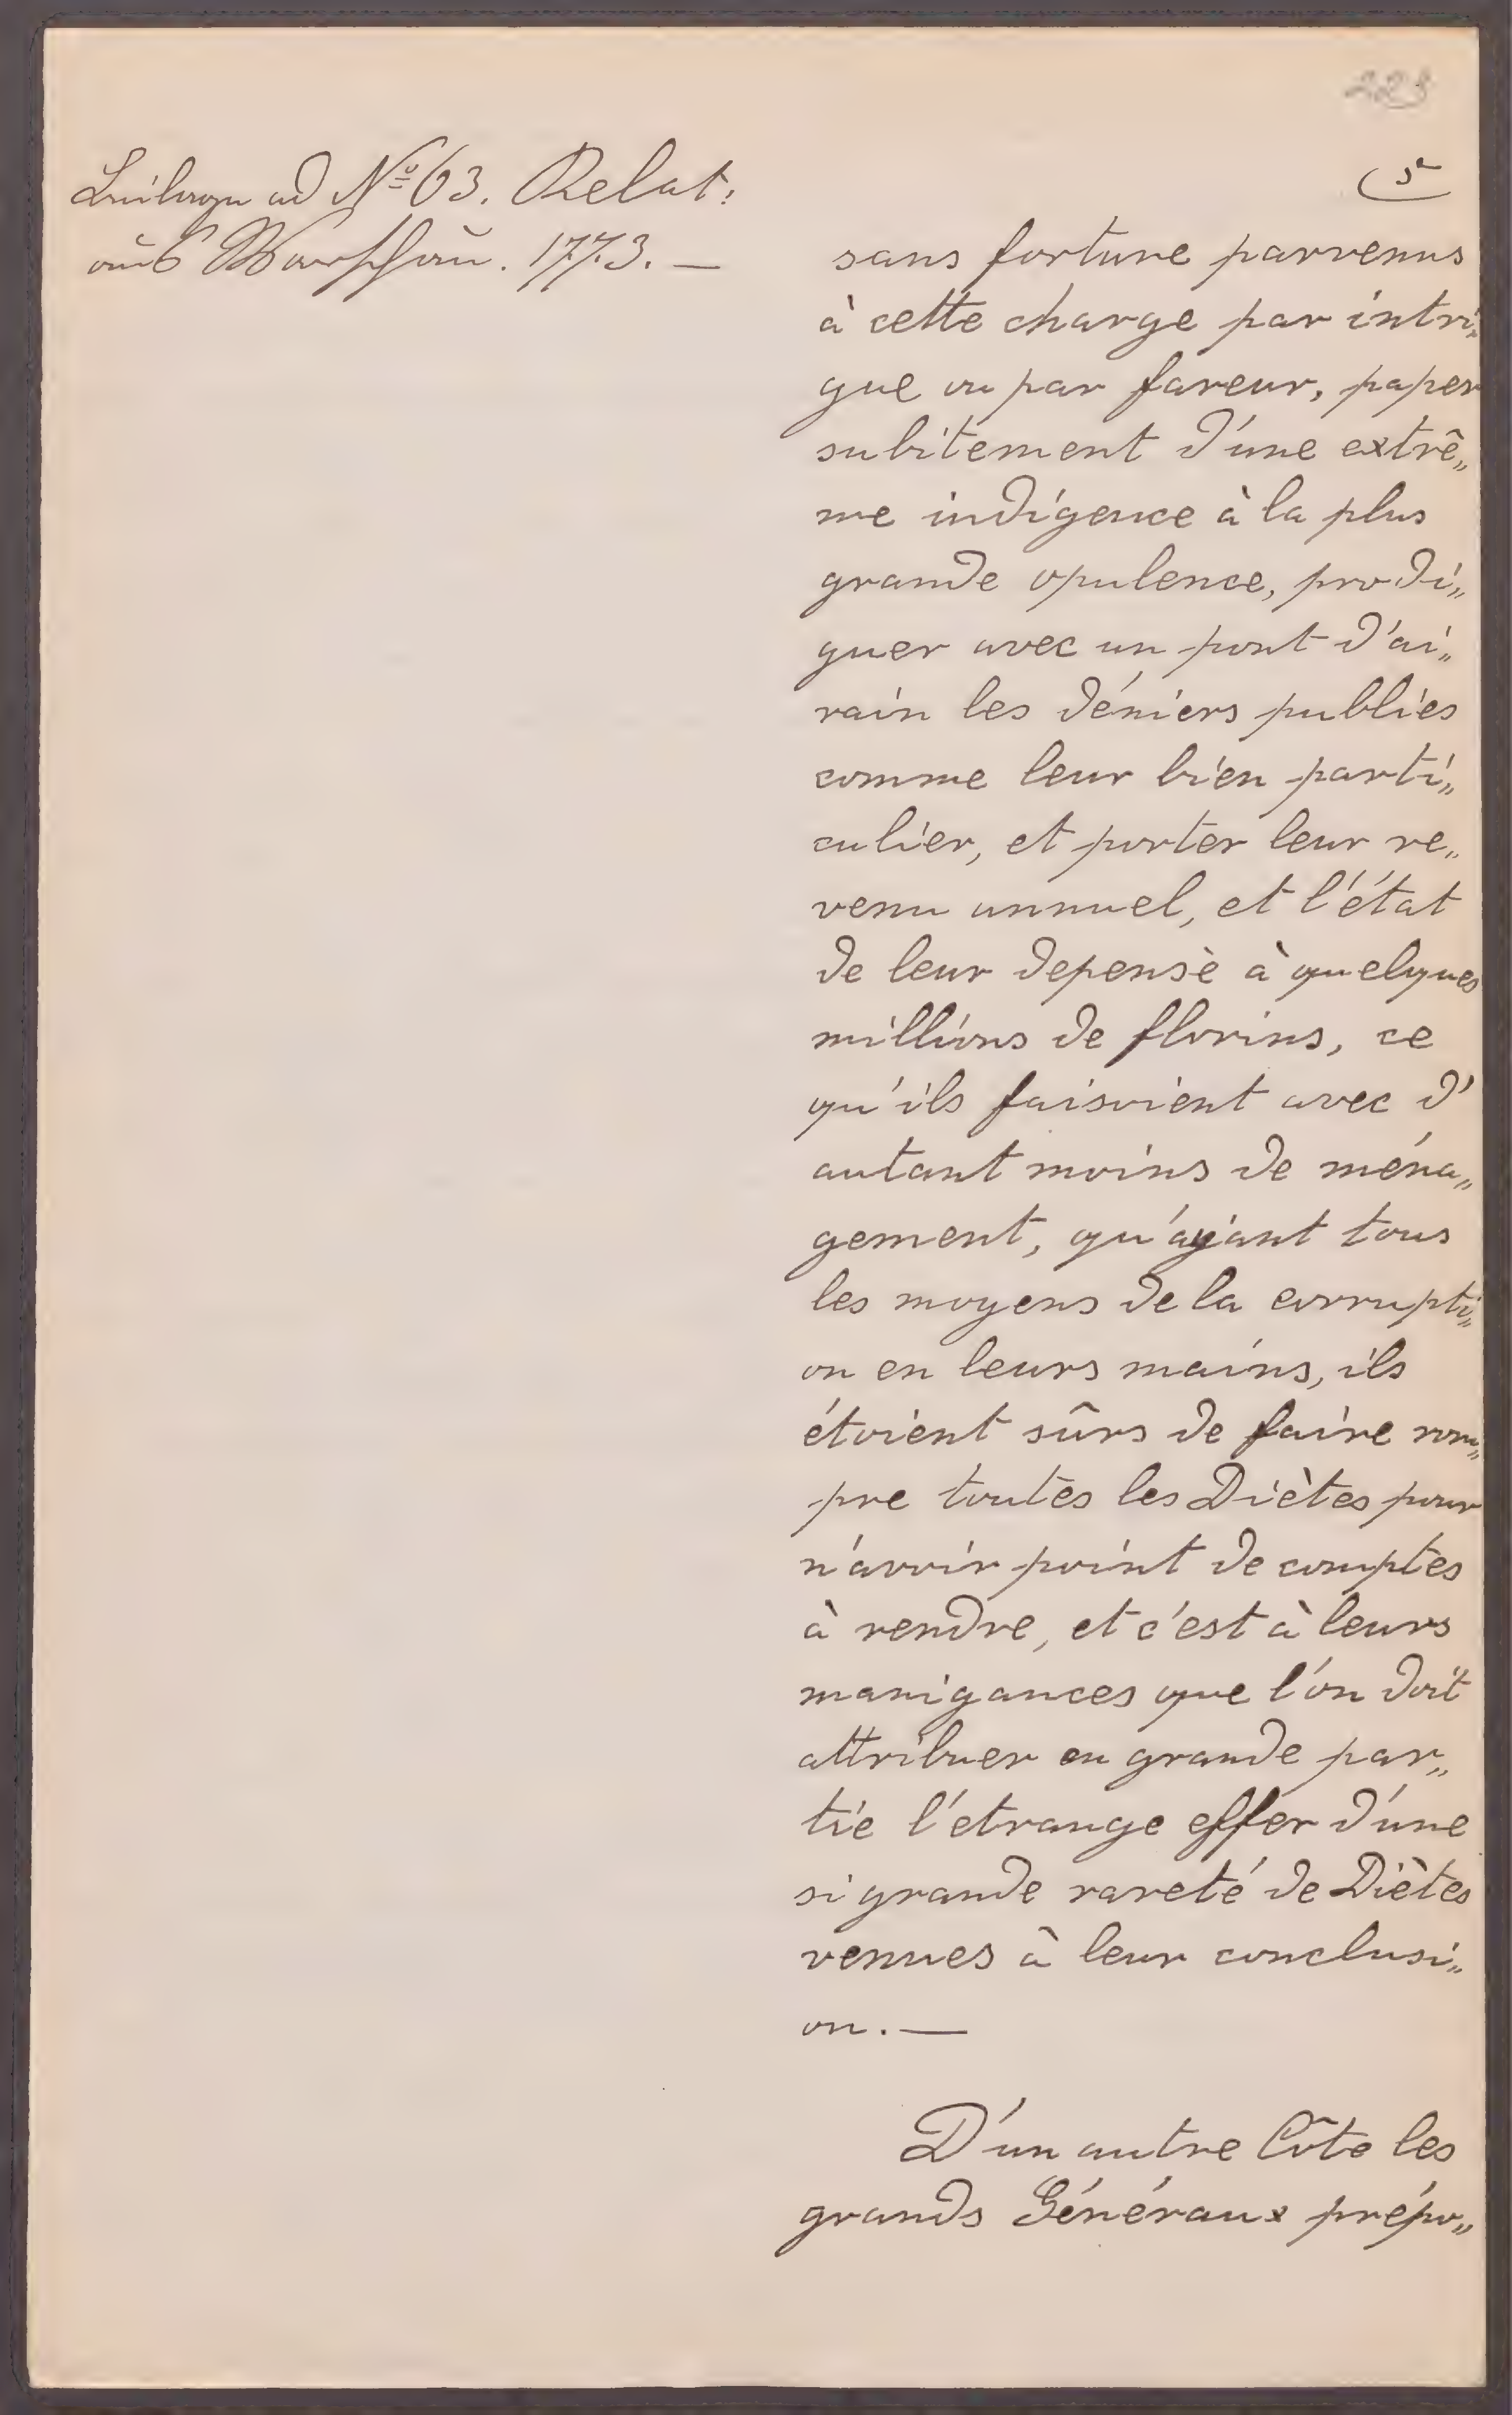 223
Beilage ad Nº 63. Relat:
aus Warschau. 1773. —
5
sans fortune parvenus
à cette charge par intri„
gue ou par faveur, passer
subitement d'une extrê„
me indigence à la plus
grande opulence, prodi„
guer avec un pont d'ai„
rain les déniers publics
comme leur bien parti„
culier, et porter leur re„
venu annuel, et l'état
de leur depense à quelques
millions de florins, ce
qu'ils faisoient avec d'
autant moins de ména„
gement, qu'ayant tous
les moyens de la corrupti„
on en leurs mains, ils
étoient sûrs de faire rom„
pre toutes les Diètes pour
n'avoir point de comptes
à rendre, et c'est à leurs
manigances que l'on doit
attribuer en grande par„
tie l'etrange effer d'une
si grande rareté de Diètes
venues à leur conclusi„
on. —
D'un autre Côte les
grands Généraux prépo„